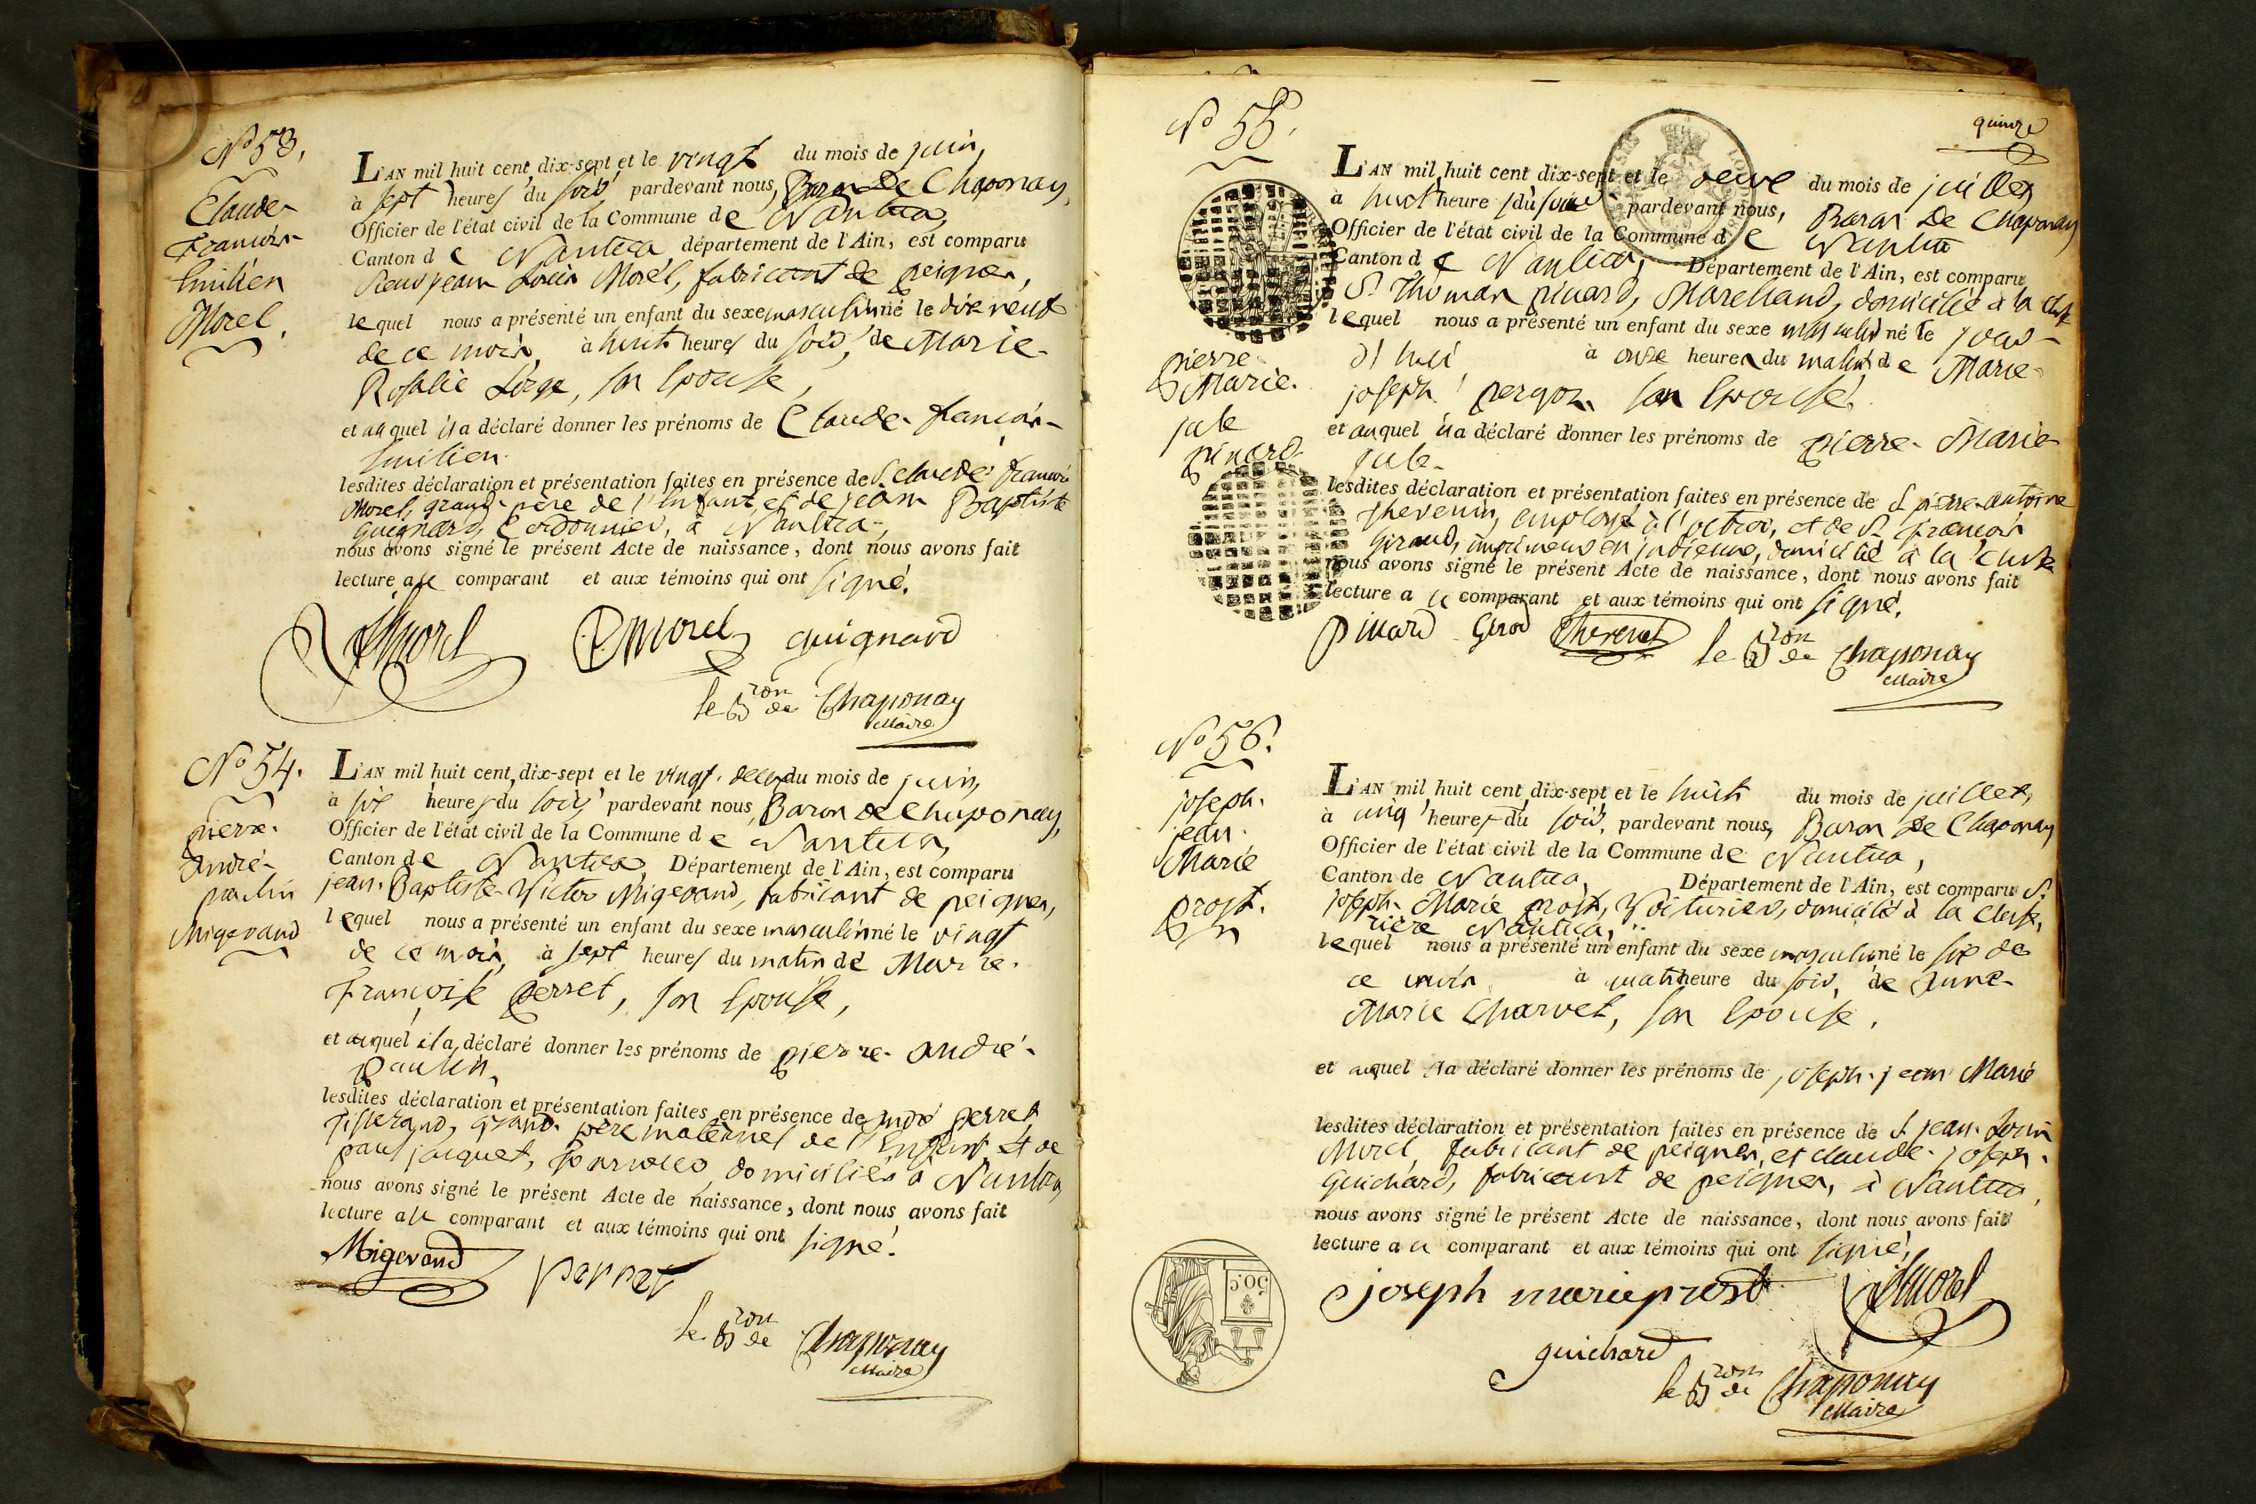 No 53.
Claude-
François-
Emilien
Morel.
L'AN mil huit cent dix-sept et le vingt du mois de juin,
à sept heures du soir, pardevant nous, Baron De Chaponay,
Officier de l'état civil de la Commune de Nantua,
Canton de Nantua département de l'Ain, est comparu
Jean Louis Morel, fabricant de peignes,
lequel nous a présenté un enfant du sexe masculin né le dix neuf
de ce mois, à huit heures du soir, de Marie-
Rosalie Liège, son Epouse,
et auquel il a déclaré donner les prénoms de Claude-françois-
Emilien.
lesdites déclaration et présentation faites en présence de S. Claude françois
Morel, grand-père de l'Enfant, et de jean Baptiste
Guignard, Cordonnier, à Nantua,
nous avons signé le présent Acte de naissance, dont nous avons fait
lecture au comparant et aux témoins qui ont signé.
Morel Morel guignard
le Bron de Chaponay
Maire
No 54.
pierre-
André-
paulin
Migerand
L'AN mil huit cent dix-sept et le vingt-deux du mois de juin,
à six heures du soir pardevant nous, Baron De Chaponay,
Officier de l'état civil de la Commune de Nantua,
Canton de Nantua, Département de l'Ain, est comparu
jean-Baptiste-Victor Migerand, fabricant de peignes,
lequel nous a présenté un enfant du sexe masculin né le vingt
de ce mois, à sept heures du matin de Marie-
Françoise Perret, son Epouse,
et auquel il a déclaré donner les prénoms de pierre-andré-
paulin,
lesdites déclaration et présentation faites en présence de andré perret
Tisserand, grand-père maternel de l'Enfant et de
paul jacquet, domiciliés à Nantua,
nous avons signé le présent Acte de naissance, dont nous avons fait
lecture au comparant et aux témoins qui ont signé.
Migerand perret
le Bron de Chaponay
Maire
quinze
No 55.
pierre
Marie-
jule
pinard
L'AN mil huit cent dix-sept et le deux du mois de juillet
à huit heures du soir pardevant nous, Baron De Chaponay
Officier de l'état civil de la Commune de Nantua
Canton de Nantua, Département de l'Ain, est comparu
S. Thomas pinard, Marchand, domicilié à la Cluse
lequel nous a présenté un enfant du sexe masculin né le jour-
d'hui à onze heures du matin de Marie-
joseph pergon son Epouse,
et auquel il a déclaré donner les prénoms de pierre-Marie
jule-
lesdites déclaration et présentation faites en présence de S. pierre-antoine
thevenin, employé à l'octroi, et de S. françois
Giraud, imprimeur en indienne, domicilié à la Cluse
nous avons signé le présent Acte de naissance, dont nous avons fait
lecture au comparant et aux témoins qui ont signé.
Pinard Girod Thevenet
le Bron de Chaponay
Maire
No 56.
joseph-
jean-
Marie
prost.
L'AN mil huit cent dix-sept et le huit du mois de juillet,
à cinq heures du soir, pardevant nous, Baron De Chaponay
Officier de l'état civil de la Commune de Nantua,
Canton de Nantua, Département de l'Ain, est comparu S.
joseph-Marie prost, Voiturier, domicilié à la Cluse,
rière Nantua,
lequel nous a présenté un enfant du sexe masculin né le six de
ce mois à quatre heure du soir, de Anne-
Marie Charvet, son Epouse,
et auquel il a déclaré donner les prénoms de joseph-jean Marie
lesdites déclaration et présentation faites en présence de S. jean-Louis
Morel, fabricant de peignes, et claude-joseph-
Guichard, fabricant de peignes, à Nantua,
nous avons signé le présent Acte de naissance, dont nous avons fait
lecture au comparant et aux témoins qui ont signé,
joseph marie prost Morel
guichard
le Bron de Chaponay
Maire
50.c